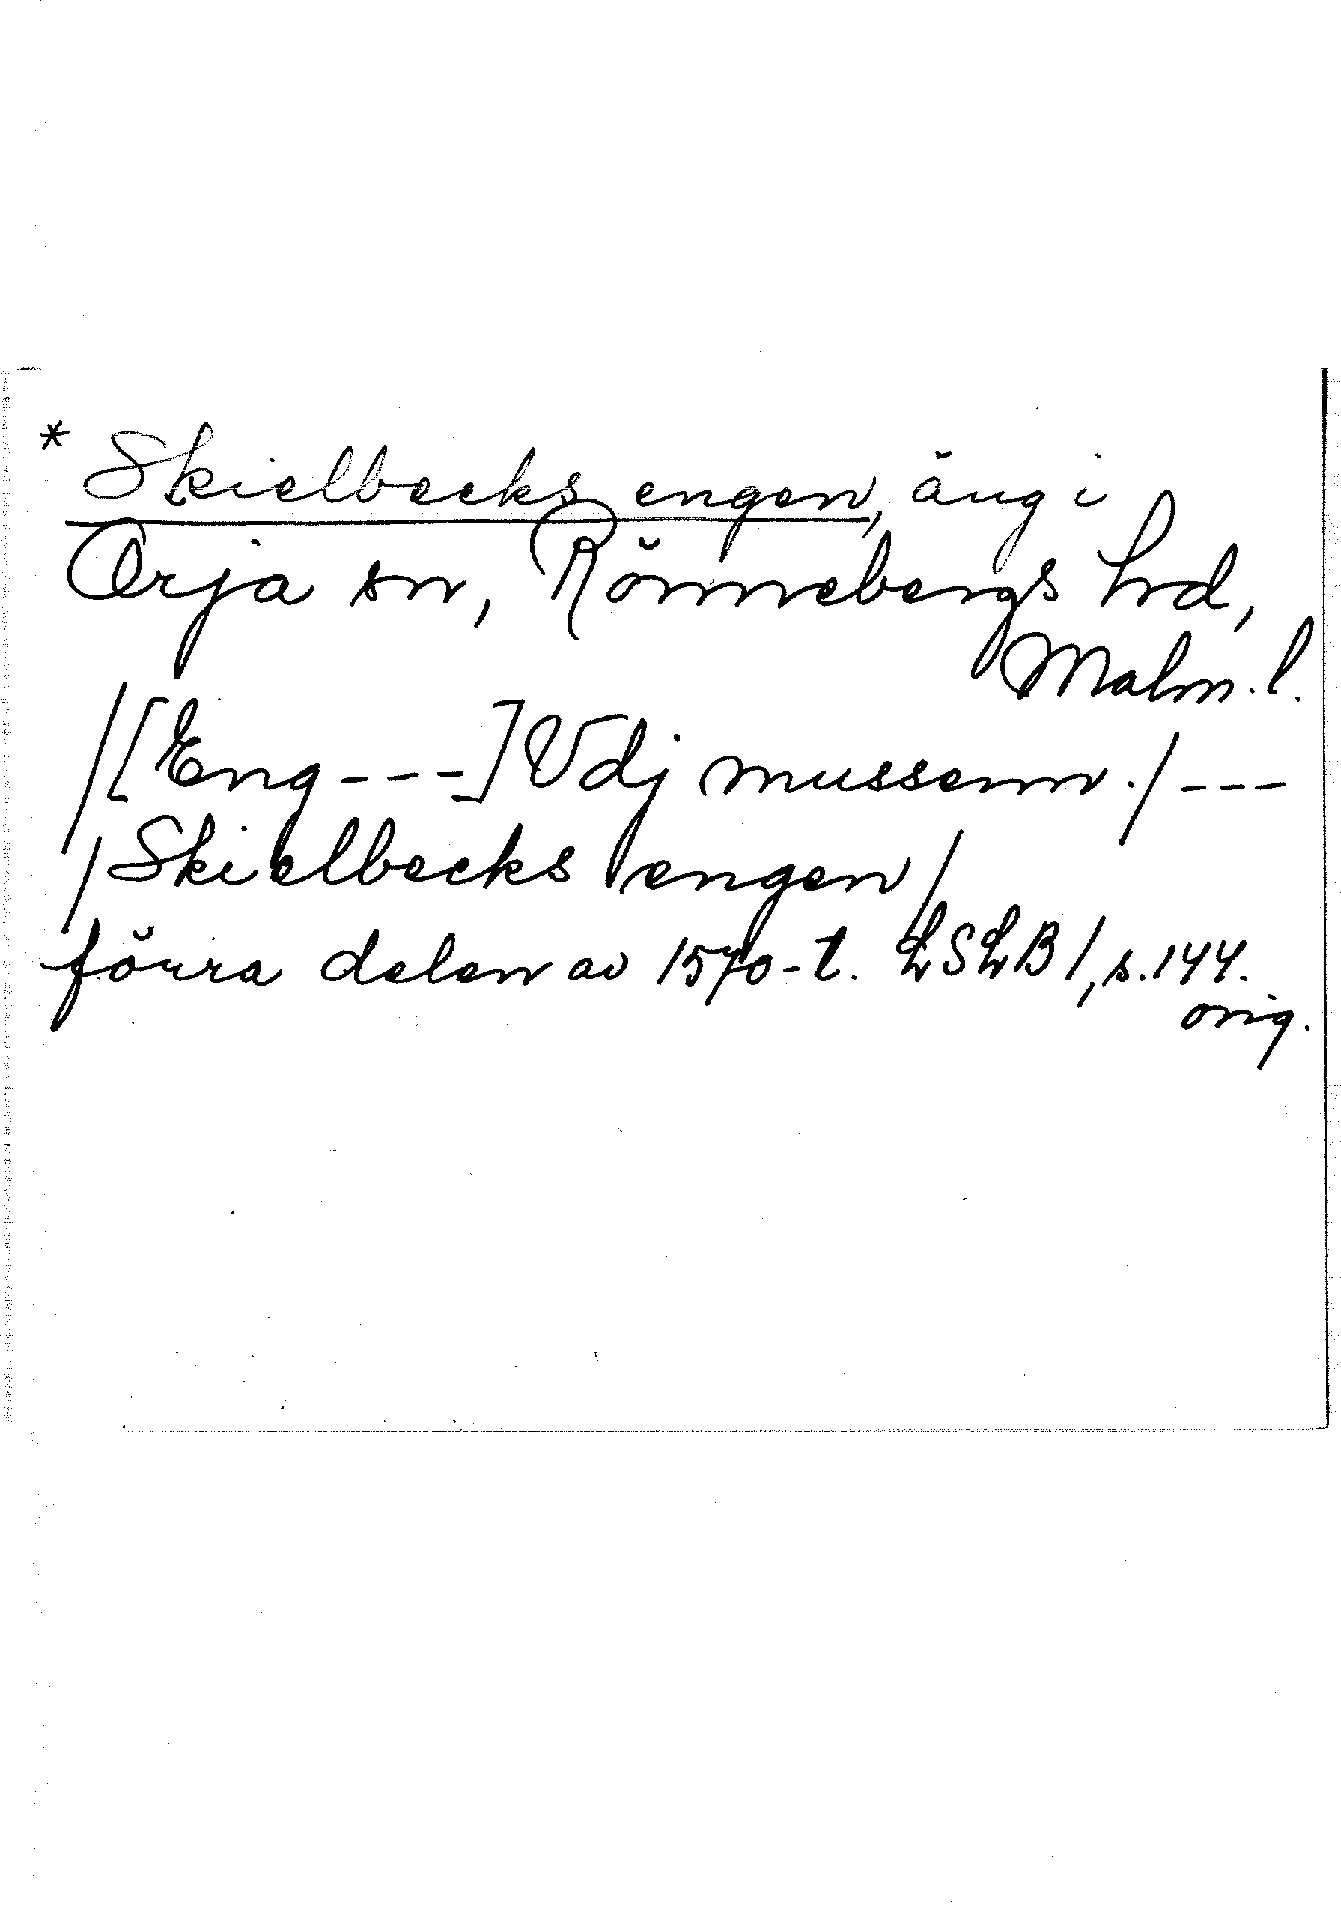 * Skielbecks engen, äng i
Örja sn, Rönnebergs hrd,
Malm. l.
/[Eng---] Vdj mussenn./---
/Skielbecks engen/
förra delen av 1570-t. LSLB 1, s. 144.
orig.